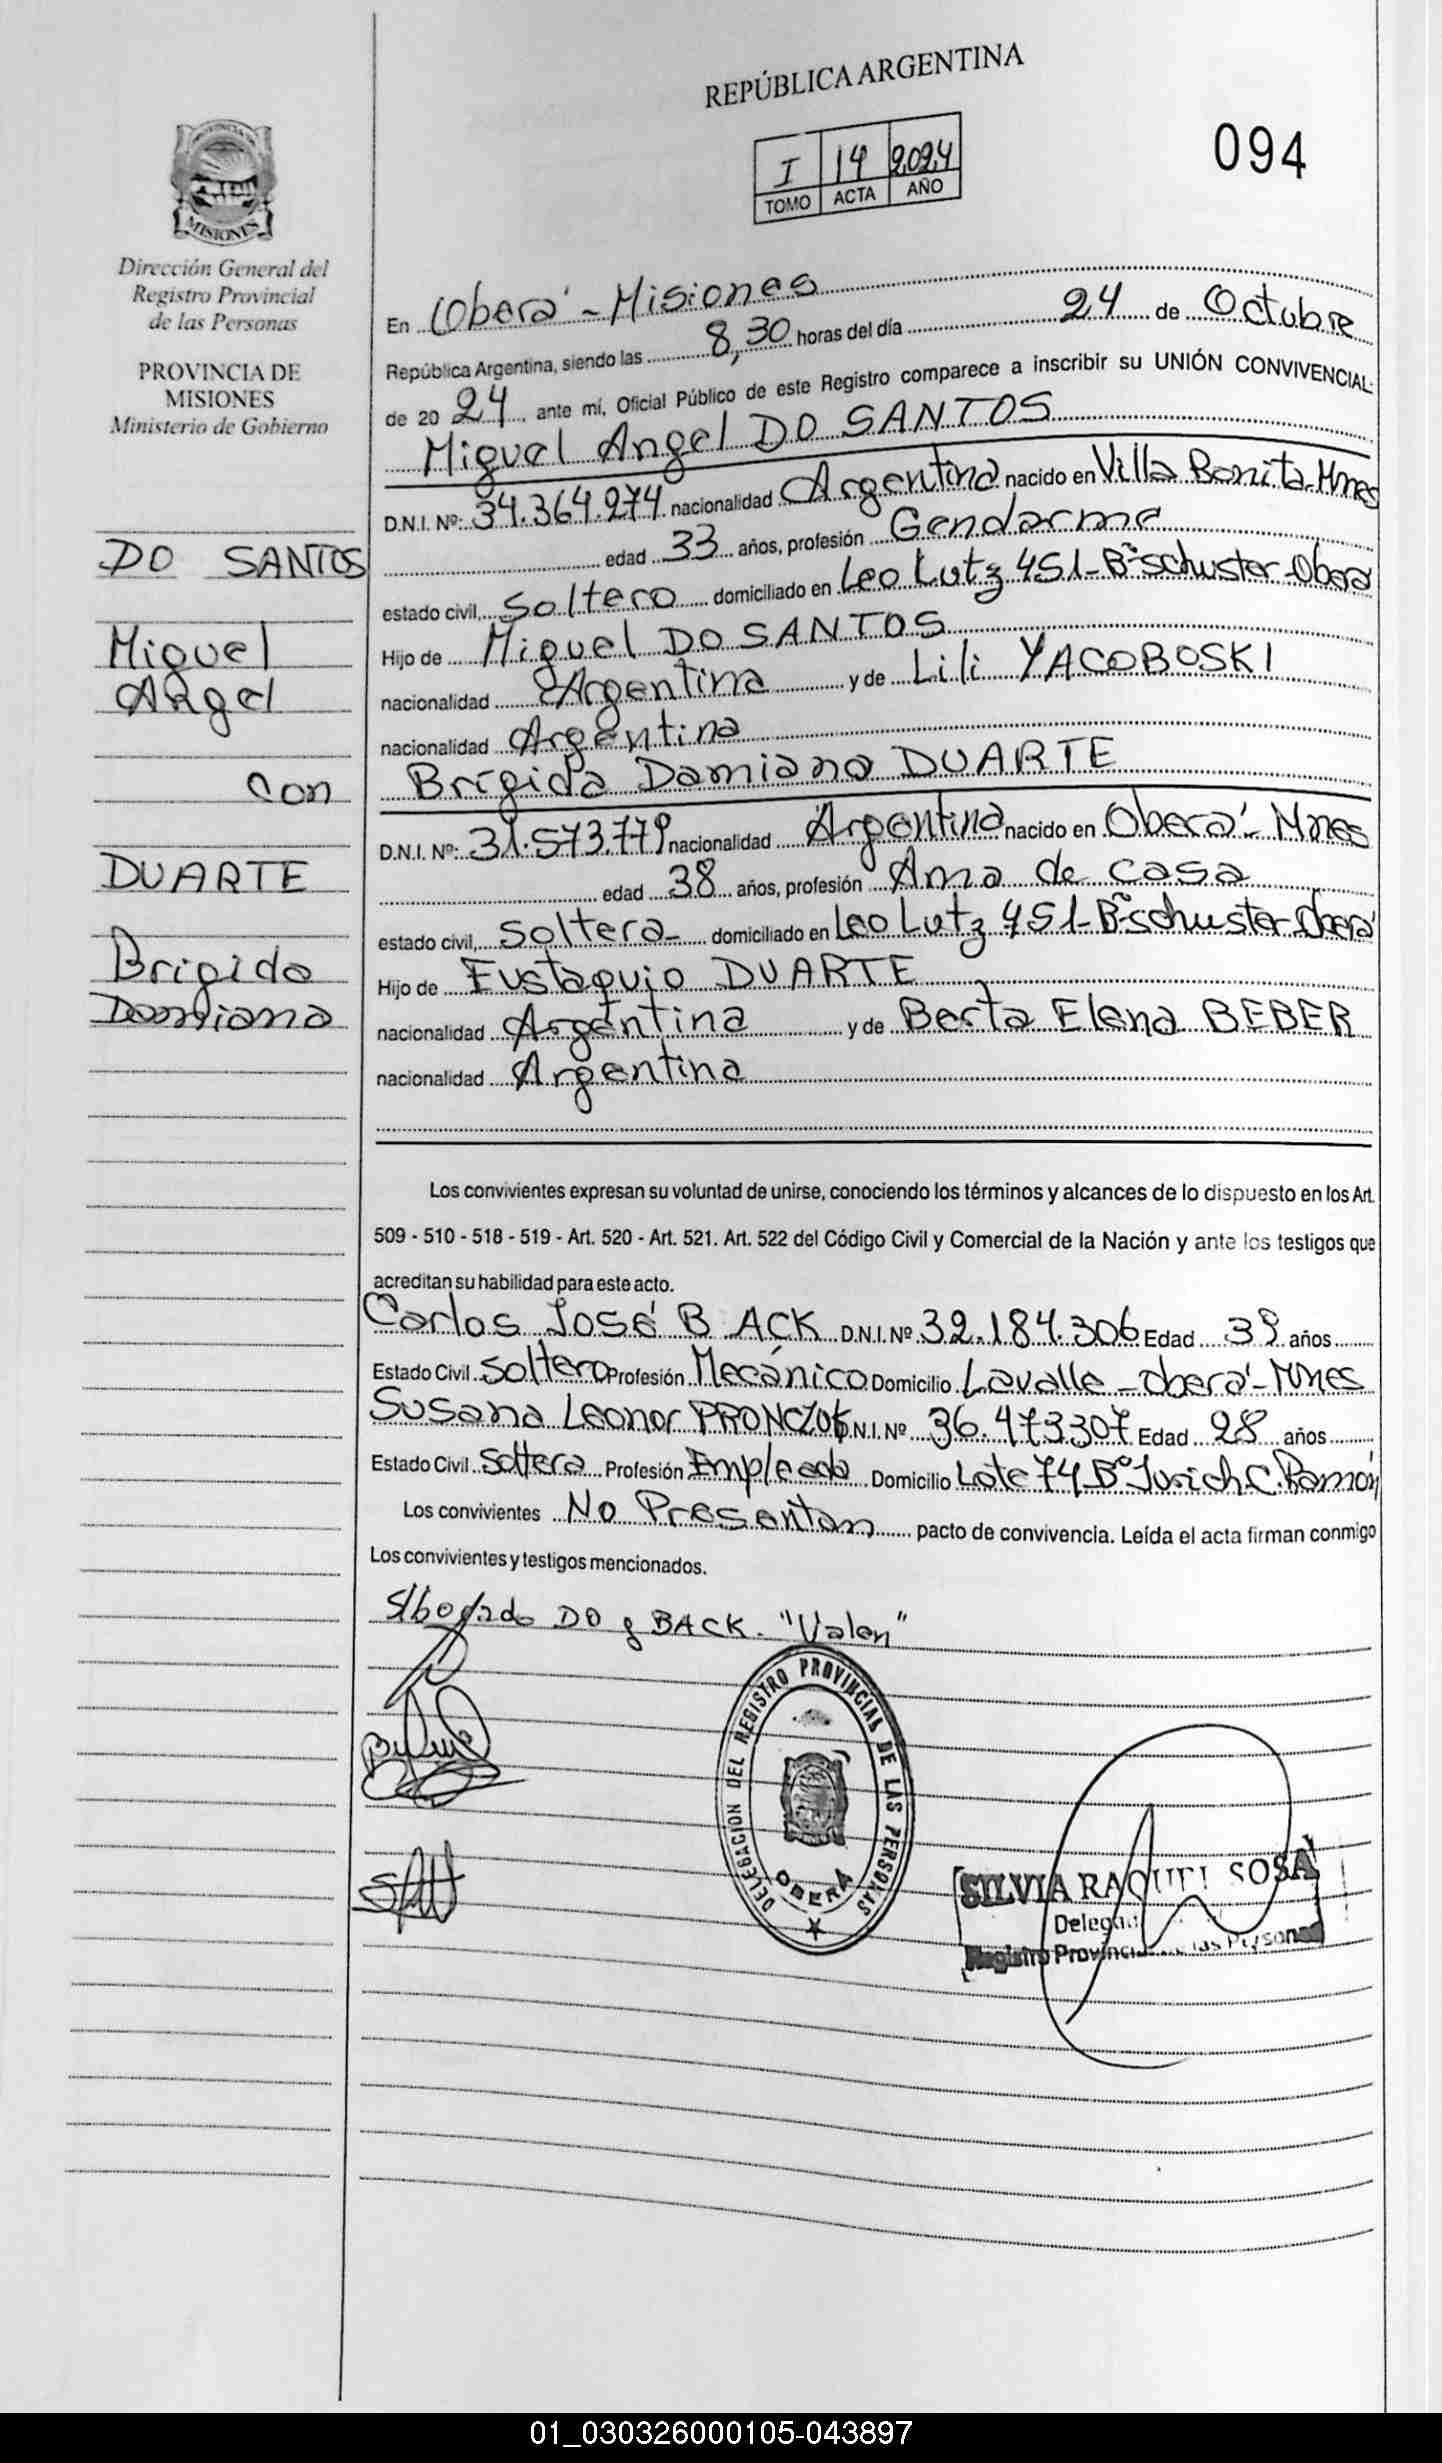 REPÚBLICA ARGENTINA
094
I 14 2.024
TOMO ACTA AÑO
PROVINCIA DE
MISIONES
Dirección General del
Registro Provincial
de las Personas
PROVINCIA DE
MISIONES
Ministerio de Gobierno
DO SANTOS
Miguel
Angel
Con
DUARTE
Brigida
Damiana
En Oberá - Misiones
República Argentina, siendo las 8,30 horas del día 24 de Octubre
de 20 24 ante mí, Oficial Público de este Registro comparece a inscribir su UNIÓN CONVIVENCIAL:
Miguel Angel DO SANTOS
D.N.I. Nº: 34.364.274 nacionalidad Argentina nacido en Villa Bonita-Mnes
edad 33 años, profesión Gendarme
estado civil, Soltero domiciliado en Leo Lutz 451-Bº Schuster-Oberá
Hijo de Miguel DO SANTOS
nacionalidad Argentina y de Lili YACOBOSKI
nacionalidad Argentina
Brígida Damiana DUARTE
D.N.I. Nº: 31.573.779 nacionalidad Argentina nacido en Oberá - Mnes
edad 38 años, profesión Ama de casa
estado civil, Soltera domiciliado en Leo Lutz 451-Bº Schuster-Oberá
Hijo de Eustaquio DUARTE
nacionalidad Argentina y de Berta Elena BEBER
nacionalidad Argentina
Los convivientes expresan su voluntad de unirse, conociendo los términos y alcances de lo dispuesto en los Art.
509 - 510 - 518 - 519 - Art. 520 - Art. 521. Art. 522 del Código Civil y Comercial de la Nación y ante los testigos que
acreditan su habilidad para este acto.
Carlos José BACK D.N.I. Nº 32.184.306 Edad 39 años
Estado Civil Soltero Profesión Mecánico Domicilio Lavalle - Oberá - Mnes
Susana Leonor PRONCZUK D.N.I. Nº 36.473307 Edad 28 años
Estado Civil Soltera Profesión Empleada Domicilio Lote 74 Bº Jurich C. Ramón
Los convivientes No Presentan pacto de convivencia. Leída el acta firman conmigo
Los convivientes y testigos mencionados.
DO y BACK. "Valen"
DELEGACION DEL REGISTRO PROVINCIAL DE LAS PERSONAS
OBERA
SILVIA RAQUEL SOSA
Registro Provincial de las Personas
01_030326000105-043897